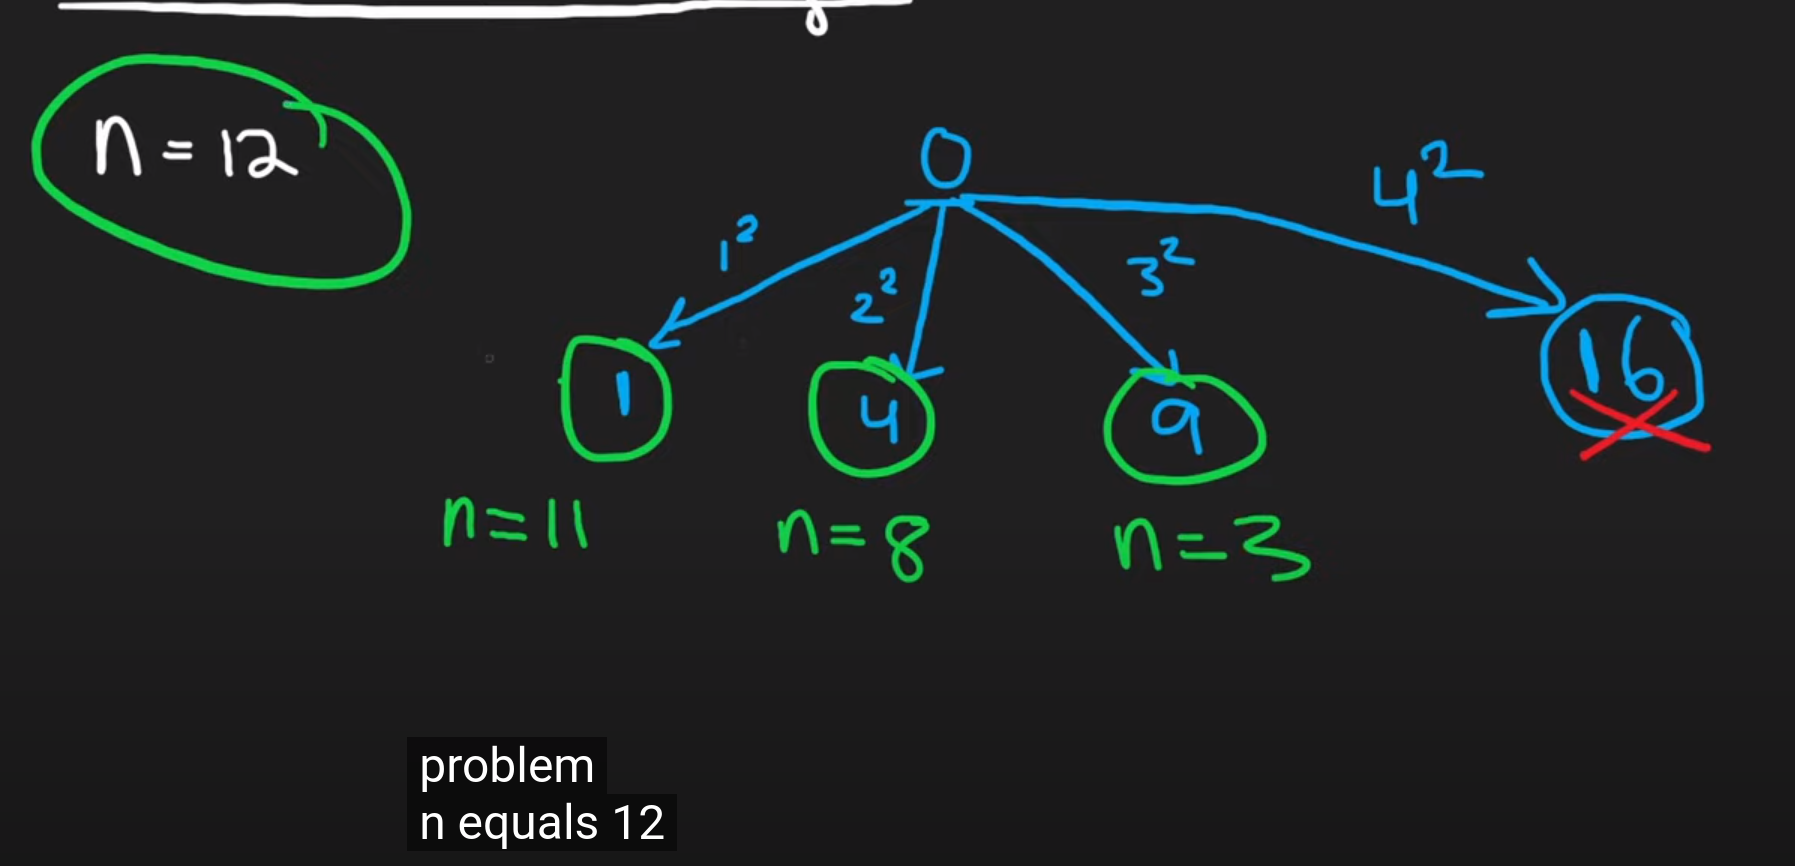 n = 12
0
1²
2²
3²
4²
1
4
9
16
n=11
n=8
n=3
problem
n equals 12